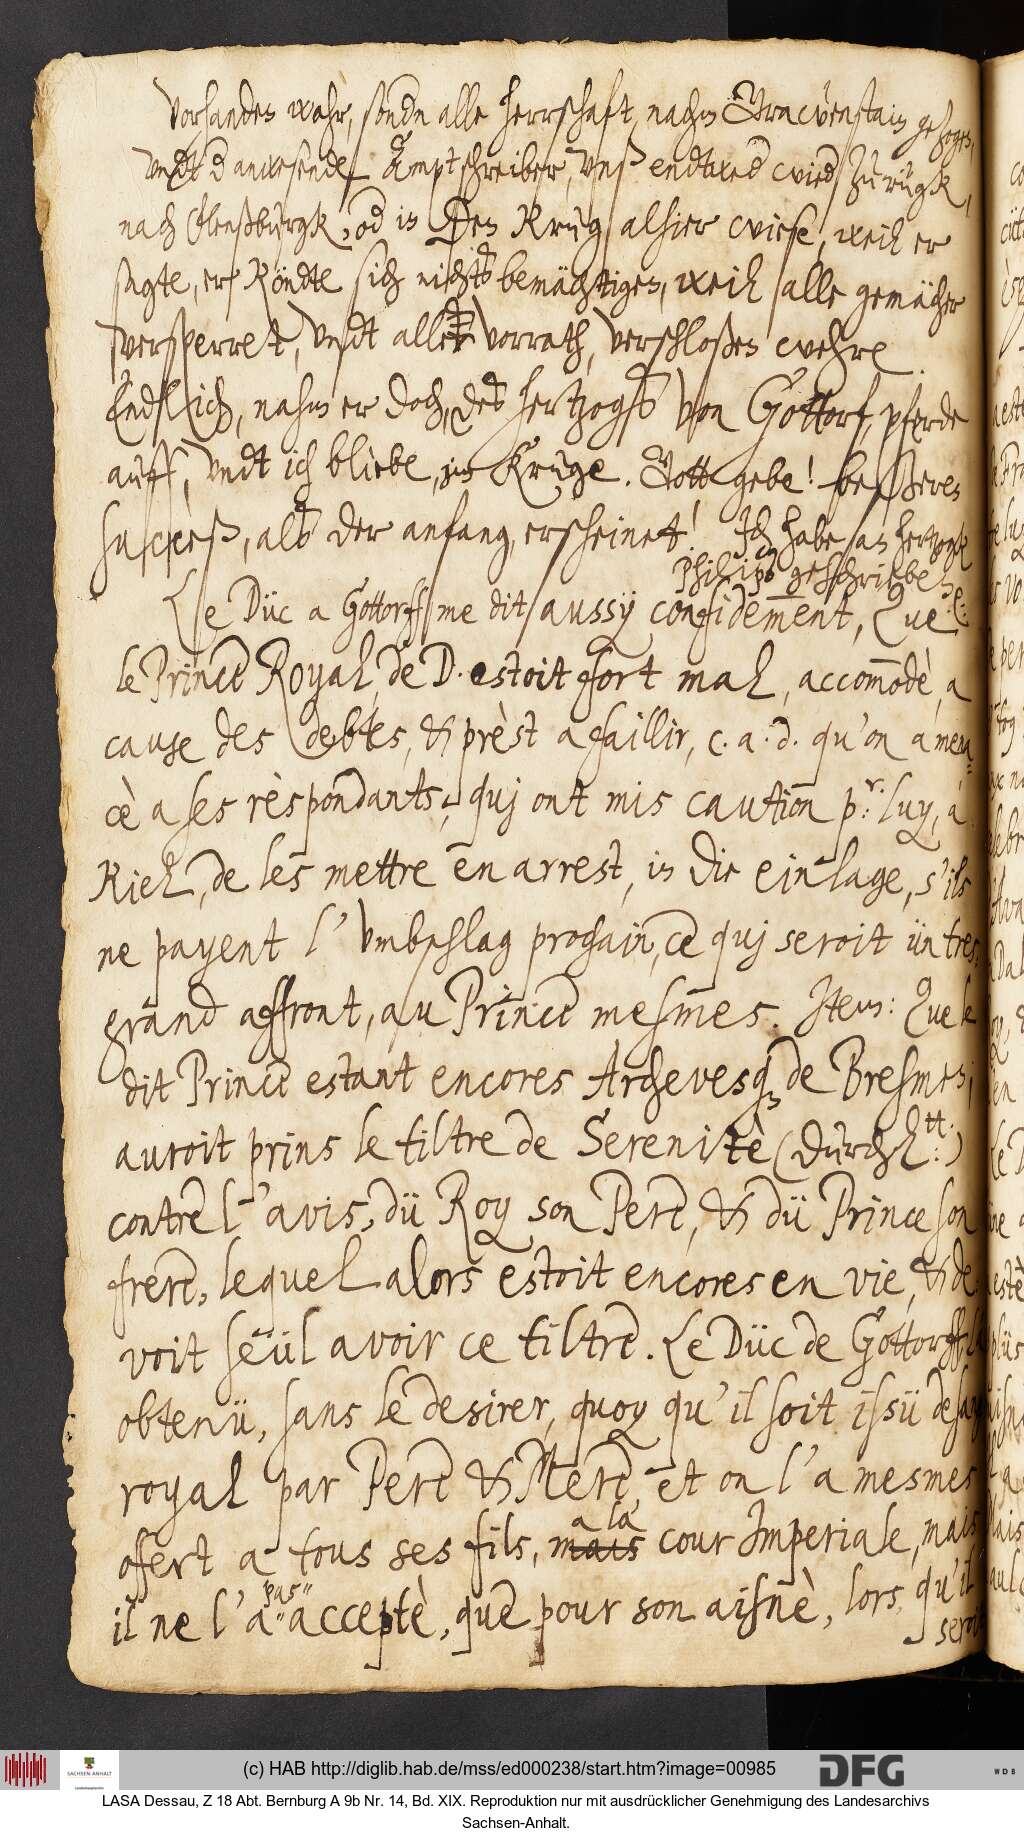 vorhanden wahr, sondern alle herrschaft, nacher Gravenstain gezogen,
undt der anwesende Amptschreiber, unß endtweder wieder zu rügk,
nach Flenßburgk, oder in den Krug alhier wiese, weil er
sagte, er köndte sich nichts bemächtigen, weil alle gemächer
versperret, undt aller vorrath, verschloßen wehre.
Endlich, nahm er doch, des hertzogs von Gottorf, pferde
auff, undt ich bliebe, im Kruge. Gott gebe! beßeren
succeß, als der anfang, erscheinet! Ich habe an hertzogk
Philips geschrieben.
Le Düc a Gottorff me dit aussy confidemment, Que
le Prince Royal, de D. estoit fort mal, accommodè, a
cause des debtes, & prèst a faillir, c. a. d. qu'on a mena¬
cè a ses rèspondants, quj ont mis caution pr: luy, a
Kiel, de les mettre en arrest, in die einlage, s'ils
ne payent l' Umbschlag prochain, ce quj seroit ün tres
grand affront, au Prince mesmes. Item: Que le
dit Prince estant encores Archevesq de Bresmen,
auroit prins le tiltre de Serenitè (Durchl.tt:)
contre l'avis, dü Roy son Pere, & dü Prince son
frere, lequel alors estoit encores en vie, & de
voit seül avoir ce tiltre. Le Düc de Gottorff, l'a
obtenü, sans le desirer, quoy qu'il soit issü de sang
royal par Pere & Mere, et on l'a mesmes
a la
ofert a tous ses fils, mais cour Imperiale, mais
pas
il ne l'a acceptè, que pour son aisnè, lors, qu'il
seroit
(c) HAB http://diglib.hab.de/mss/ed000238/start.htm?image=00985
SACHSEN-ANHALT
DFG
WDB
LASA Dessau, Z 18 Abt. Bernburg A 9b Nr. 14, Bd. XIX. Reproduktion nur mit ausdrücklicher Genehmigung des Landesarchivs
Sachsen-Anhalt.